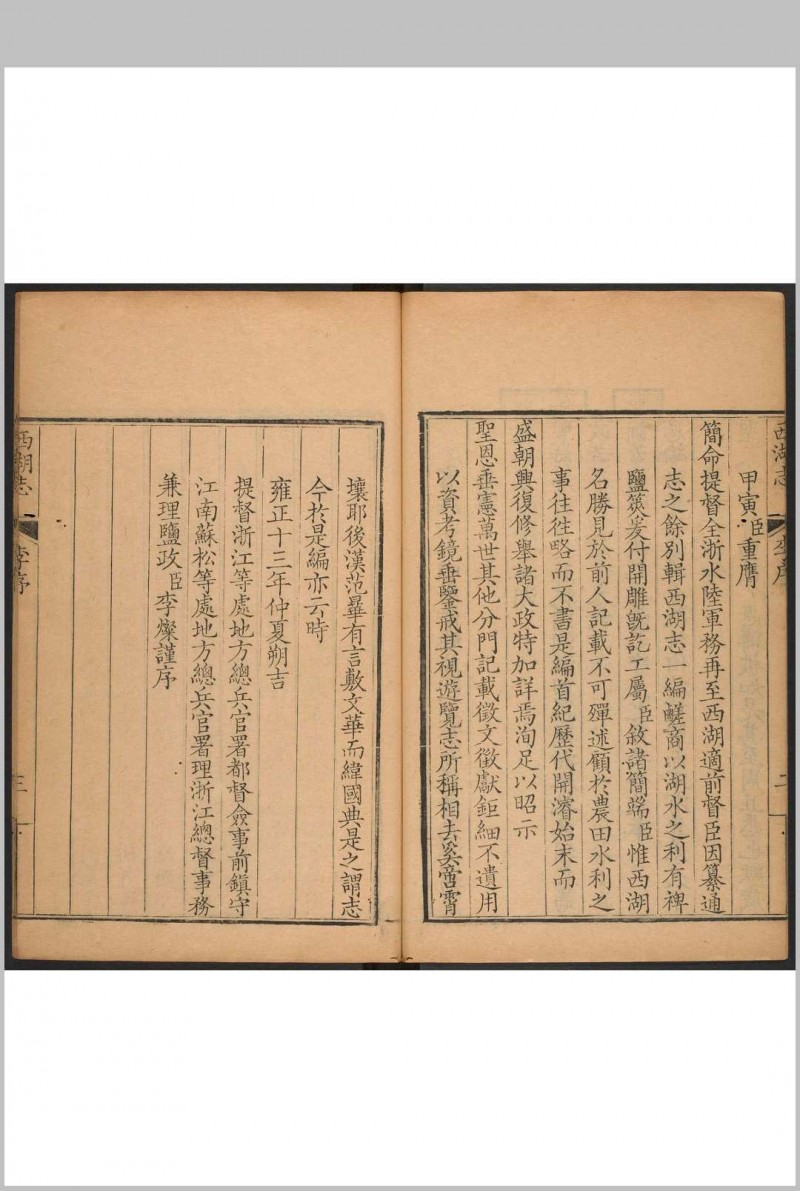 西湖志
李序
二
甲寅臣重膺
簡命提督全浙水陸軍務再至西湖適前督臣因纂通
志之餘別輯西湖志一編鹺商以湖水之利有裨
鹽筴爰付開雕旣訖工屬臣敘諸簡端臣惟西湖
名勝見於前人記載不可殫述顧於農田水利之
事往往略而不書是編首紀歷代開濬始末而
盛朝興復修舉諸大政特加詳焉洵足以昭示
聖恩垂憲萬世其他分門記載徵文徵獻鉅細不遺用
以資考鏡垂鑒戒其視遊覽志所稱相去奚啻霄
壤耶後漢范畢有言敷文華而緯國典是之謂志
今於是編亦云時
雍正十三年仲夏朔吉
提督浙江等處地方總兵官署都督僉事前鎮守
江南蘇松等處地方總兵官署理浙江總督事務
兼理鹽政臣李燦謹序
西湖志
李序
三